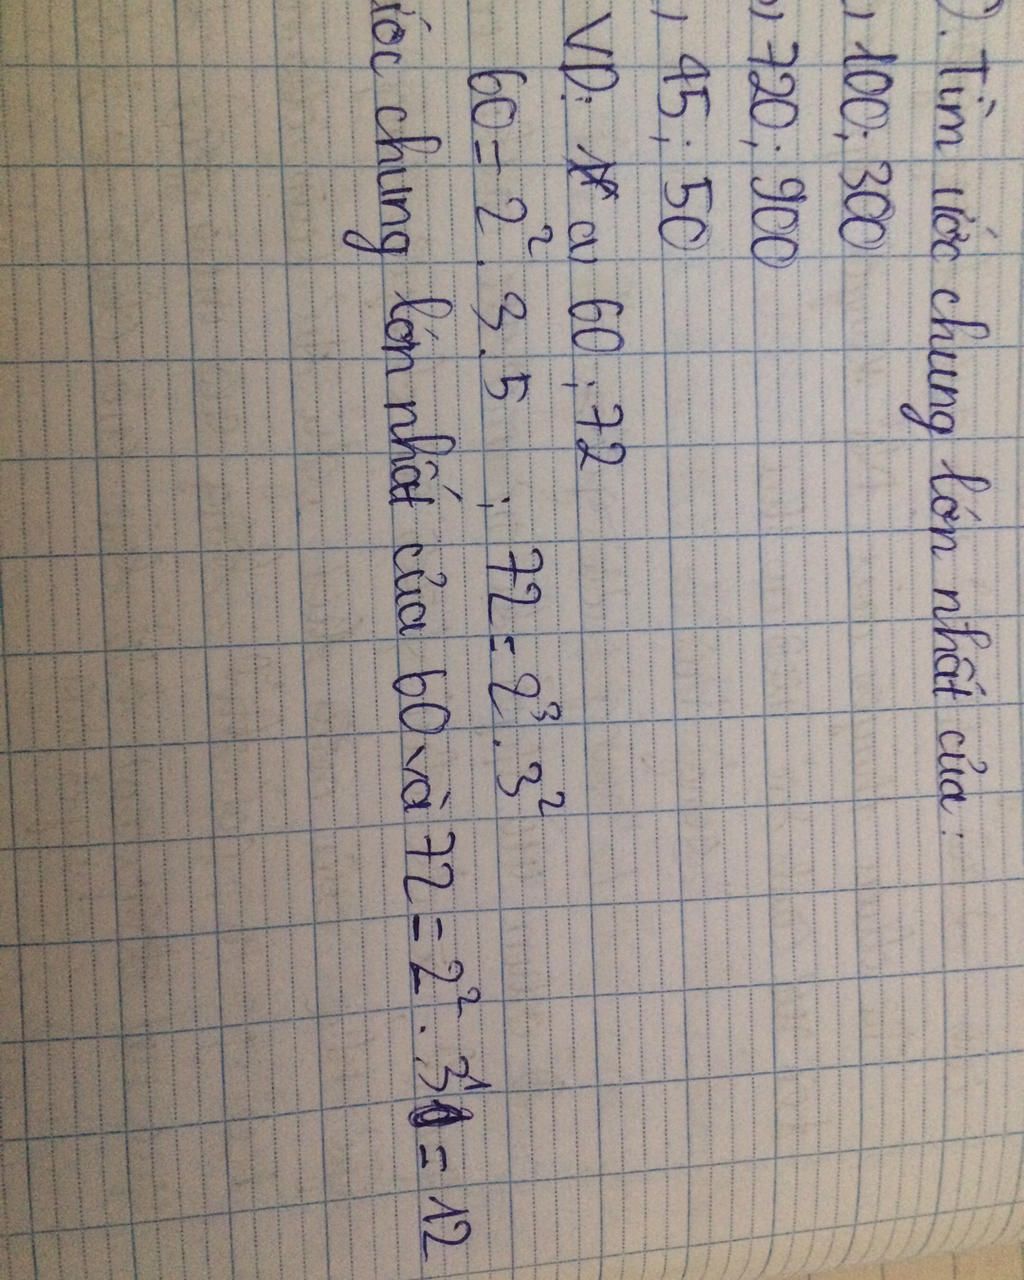 ). Tìm ước chung lớn nhất của:
, 100; 300
b, 720; 900
, 45; 50
VD: a, 60; 72
60 = 2². 3. 5 ; 72 = 2³. 3²
ước chung lớn nhất của 60 và 72 = 2². 3¹ = 12